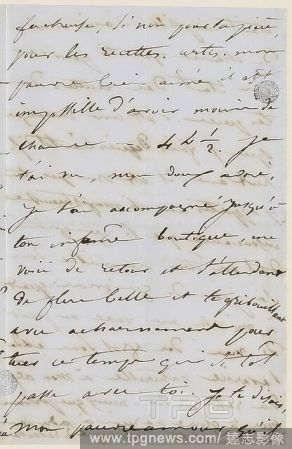 fâcheuse, si non pour la pièce,
pour les recettes. certes, mon
pauvre bien aimé il est
impossible d'avoir moins de
chance — 4 h ½. je
t'ai vu, mon doux adoré,
je t'ai accompagné jusqu'à
ton infâme boutique, me
voici de retour et t'attendant
de plus belle et te gribouillant
avec acharnement pour
tuer ce temps qui si tôt
passe avec toi. Je te disais,
mon pauvre amour qu'il
TPG
www.tpgnews.com／達志影像